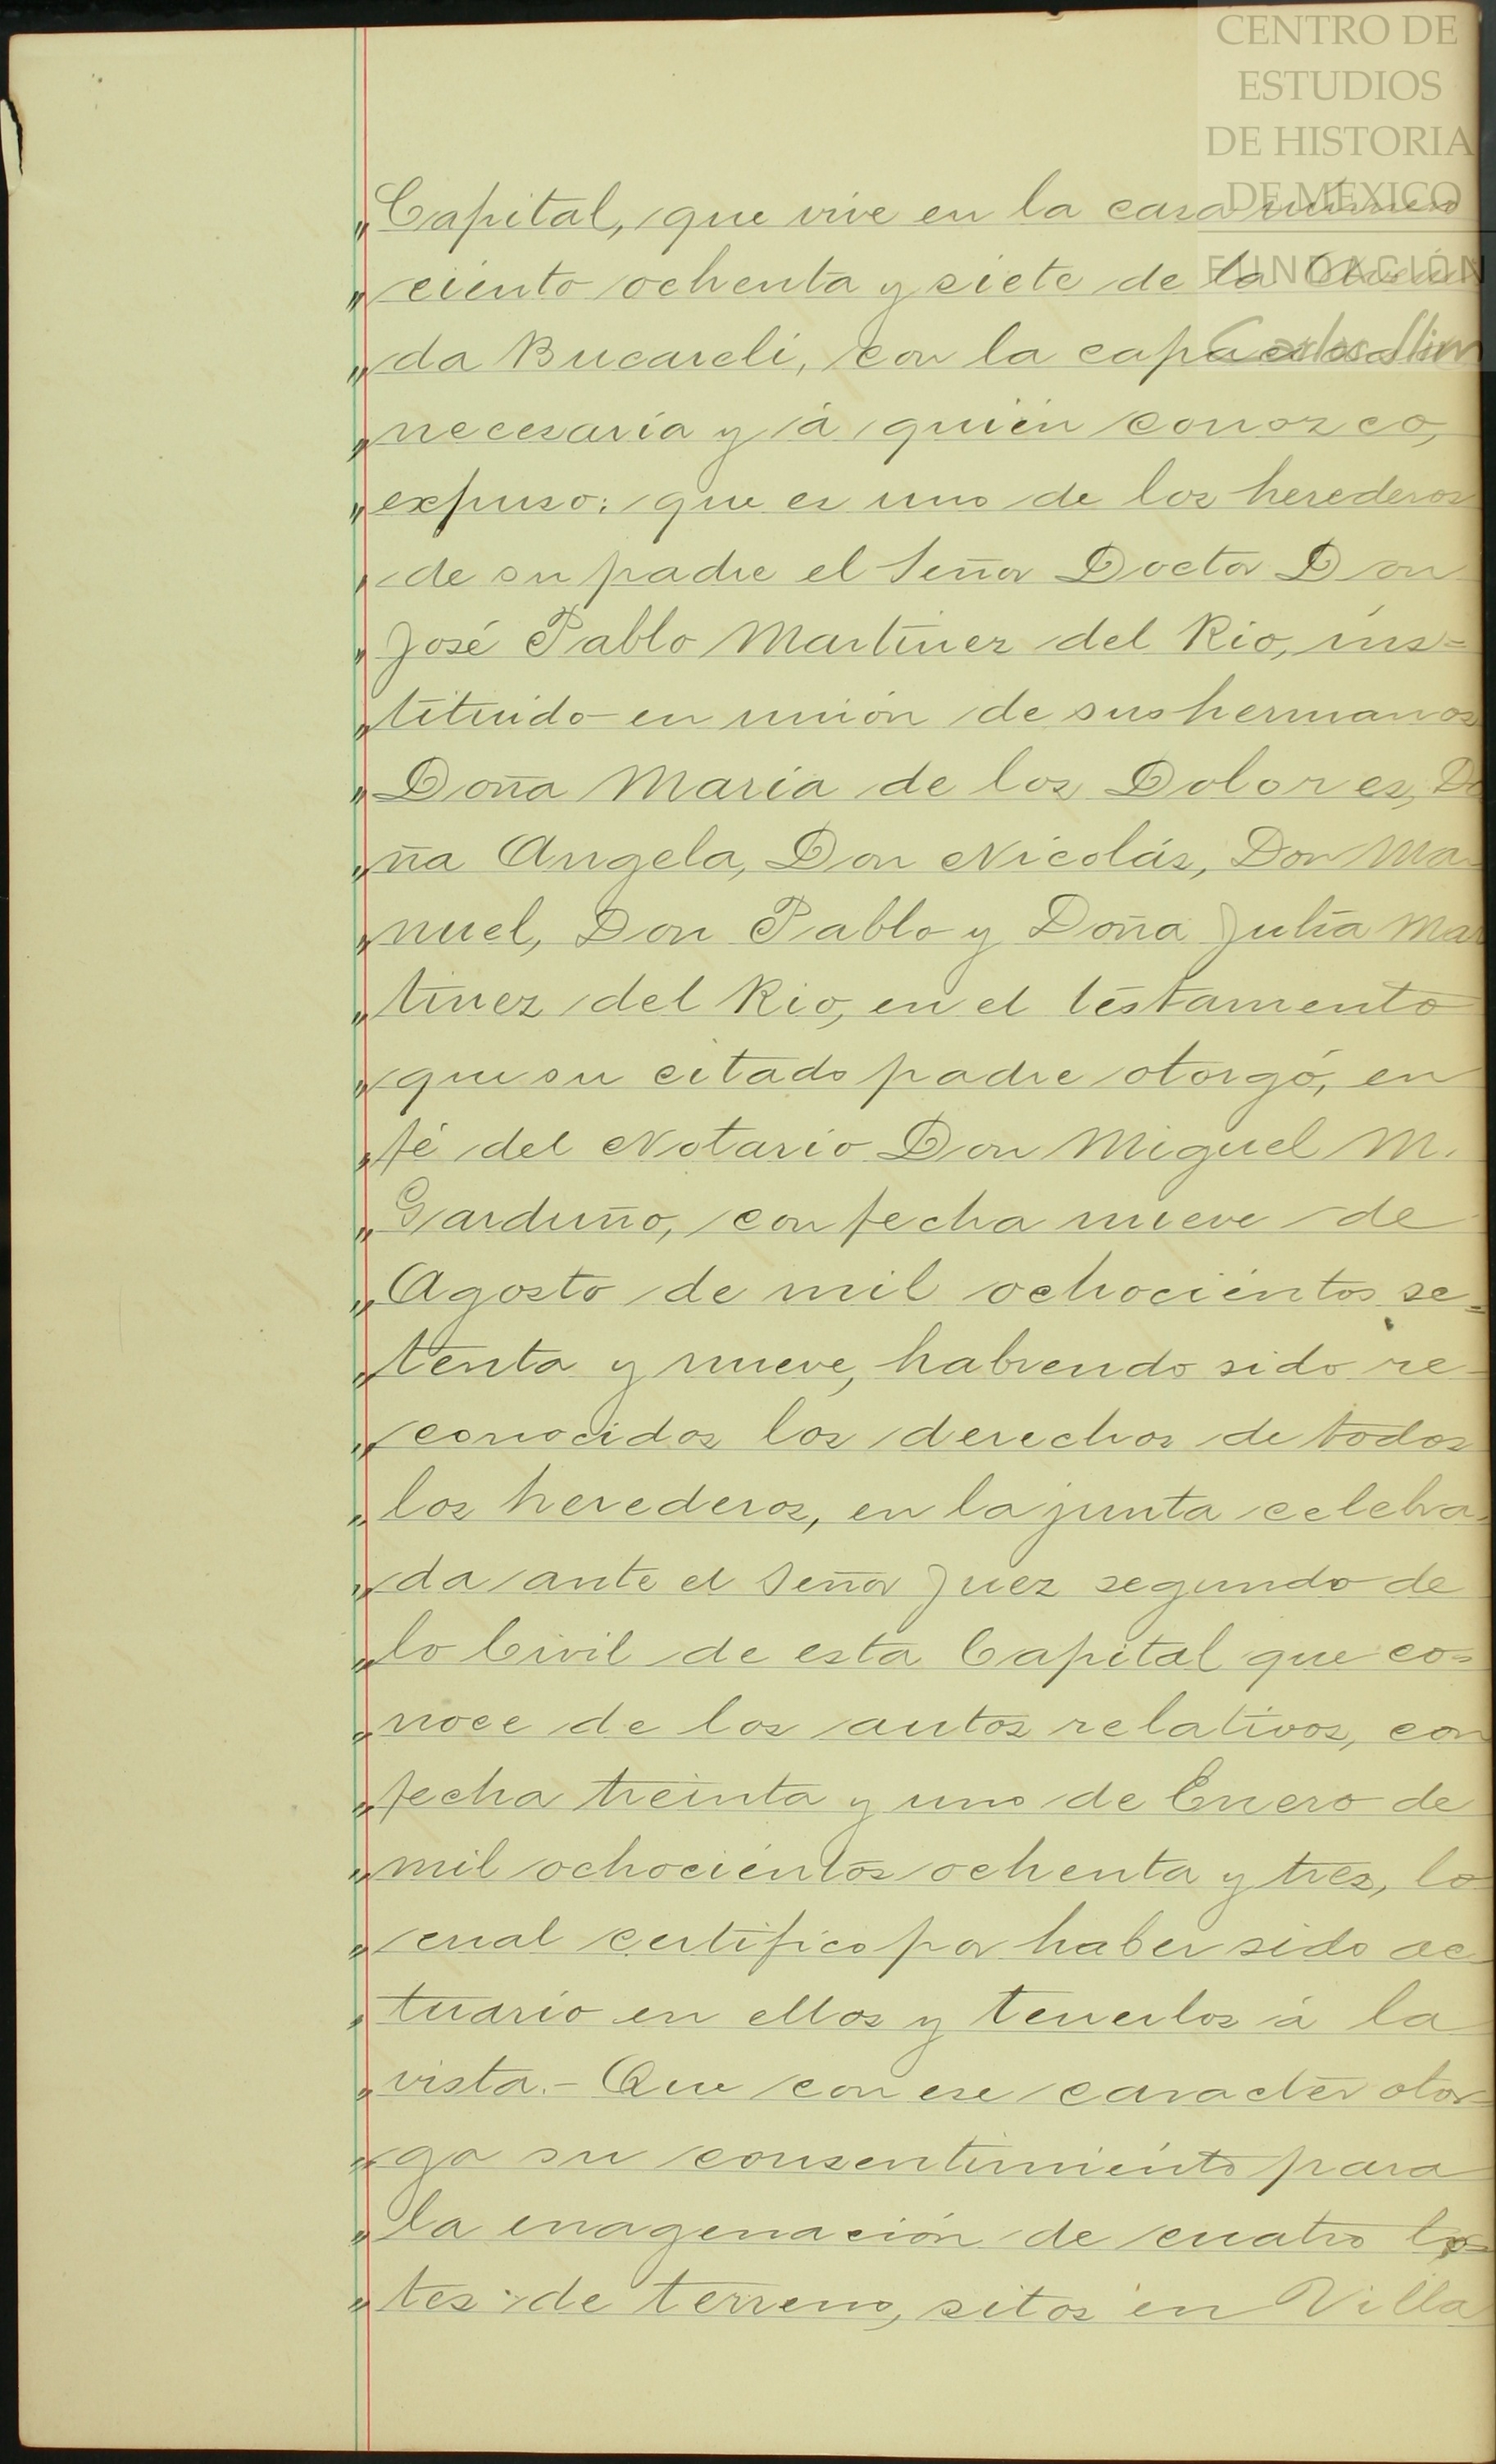 CENTRO DE
ESTUDIOS
DE HISTORIA
DE MÉXICO
FUNDACIÓN
Carlos Slim
„Capital, que vive en la casa número
„ciento ochenta y siete de la Aveni
„da Bucareli, con la capacidad
„necesaria y á quién conozco,
„expuso: que es uno de los herederos
„de su padre el Señor Doctor Don
„José Pablo Martinez del Rio, ins=
„tituido en unión de sus hermanos
„Doña Maria de los Dolores, Do
„ña Angela, Don Nicolás, Don Ma-
„nuel, Don Pablo y Doña Julia Mar
„tinez del Rio, en el testamento
„que su citado padre otorgó, en
„fé del Notario Don Miguel M.
„Garduño, con fecha nueve de
„Agosto de mil ochocientos se=
„tenta y nueve, habiendo sido re-
„conocidos los derechos de todos
„los herederos, en la junta celebra-
„da ante el Señor Juez segundo de
„lo Civil de esta Capital que co=
„noce de los autos relativos, con
„fecha treinta y uno de Enero de
„mil ochocientos ochenta y tres, lo
„cual certifico por haber sido ac
„tuario en ellos y tenerlos á la
„vista.- Que con ese caracter otor
„ga su consentimiento para
„la enagenación de cuatro lo=
„tes de terreno, sitos en Villa